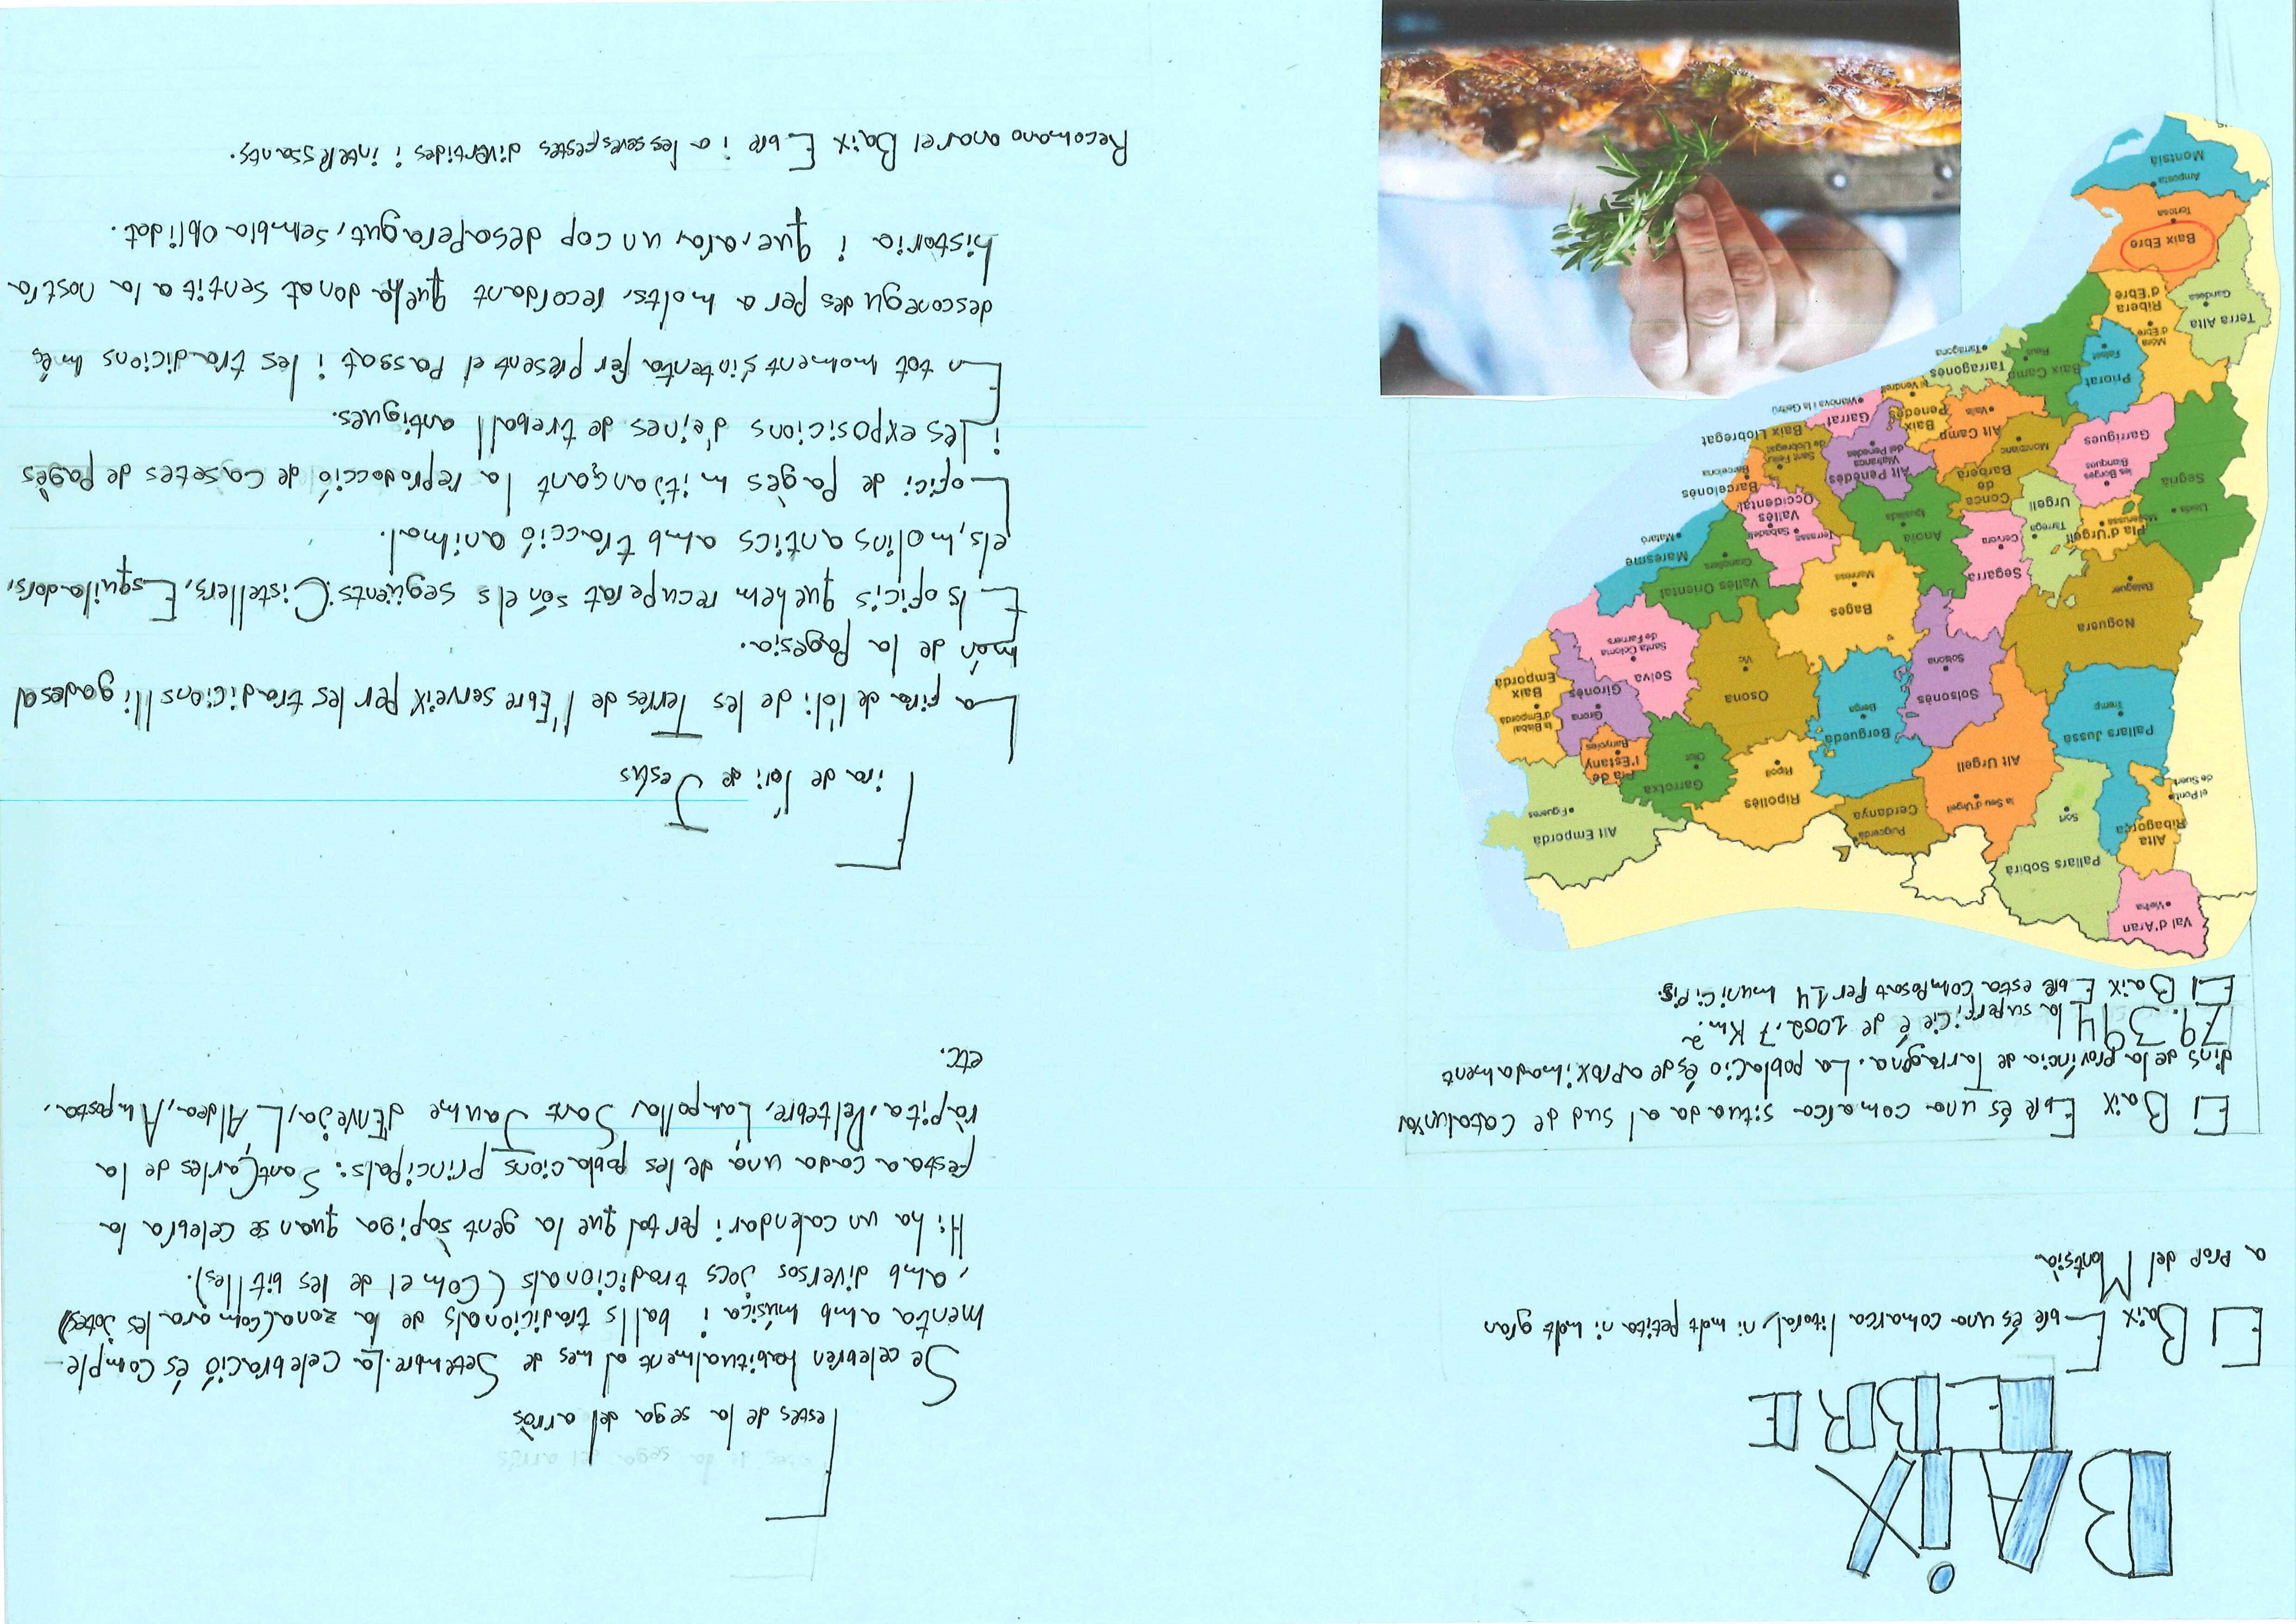 BAiX
EBRE
El Baix Ebre és una comarca litoral, ni molt petita ni molt gran
a prop del Montsià.
El Baix Ebre és una comarca situada al sud de Catalunya
dins de la província de Tarragona. La població és de aproximadament
79.394 la superfície é de 1.002,7 Km2.
El Baix Ebre està composat per 14 municipis.
Val d'Aran
Vielha
Alta
Ribagorça
el Pont
de Suert
Pallars Sobirà
Sort
Alt Urgell
la Seu d'Urgell
Cerdanya
Puigcerdà
Ripollès
Ripoll
Garrotxa
Olot
Alt Empordà
Figueres
Pla de
l'Estany
Banyoles
Pallars Jussà
Tremp
Solsonès
Solsona
Berguedà
Berga
Osona
Vic
Gironès
Girona
Baix
Empordà
la Bisbal
d'Empordà
Selva
Santa Coloma
de Farners
Noguera
Balaguer
Segarra
Cervera
Bages
Manresa
Vallès Oriental
Granollers
Maresme
Mataró
Segrià
Lleida
Pla d'Urgell
Mollerussa
Urgell
Tàrrega
Anoia
Igualada
Vallès
Occidental
Terrassa
Sabadell
Barcelonès
Barcelona
Garrigues
les Borges
Blanques
Conca
de
Barberà
Montblanc
Alt Penedès
Vilafranca
del Penedès
Baix Llobregat
Sant Feliu
de Llobregat
Garraf
Vilanova i la Geltrú
Baix
Penedès
el Vendrell
Alt Camp
Valls
Tarragonès
Tarragona
Baix Camp
Reus
Priorat
Falset
Ribera
d'Ebre
Móra
d'Ebre
Terra Alta
Gandesa
Baix Ebre
Tortosa
Montsià
Amposta
Festes de la sega del arròs
Se celebren habitualment al mes de Setembre. La celebració és comple-
menta amb música i balls tradicionals de la zona (com ara les jotes)
, amb diversos jocs tradicionals (Com el de les bitlles).
Hi ha un calendari per tal que la gent sàpiga quan se celebra la
festa a cada una de les poblacions principals: Sant Carles de la
ràpita, Deltebre, L'ampolla, Sant Jaume d'Enveja, L'Aldea, Amposta,
etc.
Fira de l'oli de Jesús
La fira de l'oli de les Terres de l'Ebre serveix per les tradicions lligades al
món de la Pagesia.
Els oficis que hem recuperat són els següents: Cistellers, Esquiladors,
els, molins antics amb tracció animal.
L'ofici de Pagès mitjançant la reprodocció de Casetes de Pagès
i les exposicions d'eines de treball antigues.
En tot moment s'intenta fer present el Passat i les tradicions més
desconegudes per a molts, recordant que ha donat sentit a la nostra
historia i que, ara, un cop desaparegut, sembla oblidat.
Recomano anar el Baix Ebre i a les seves festes divertides i interessants.